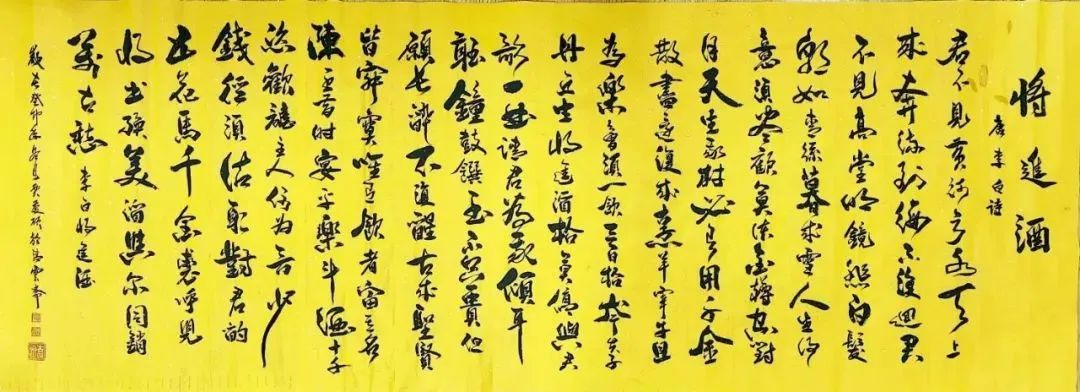 将進酒
唐李白诗
君不見黄河之水天上
来奔流到海不復迴君
不見高堂明鏡悲白髮
朝如青絲暮来雪人生得
意須尽歡莫使金樽空對
月天生我材必有用千金
散盡还復来烹羊宰牛且
為樂會須一飲三百杯岑夫子
丹丘生将進酒杯莫停與君
歌一曲请君為我傾耳
聽鐘鼓饌玉不足貴但
願长醉不復醒古来聖賢
皆寂寞唯有飲者留其名
陳王昔时宴平樂斗酒十千
恣歡謔主人何为言少
錢徑須沽取對君酌
五花馬千金裘呼兒
将出换美酒與尔同銷
萬古愁 李白将進酒
歲在癸卯年冬月